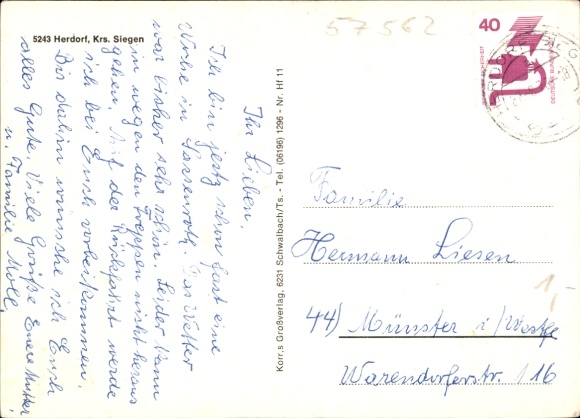 57562
5243 Herdorf, Krs. Siegen
40
DEUTSCHE BUNDESPOST
HERDORF
Ihr Lieben,
Ich bin jetzt schon fast eine
Woche in Sassenroth. Das Wetter
war bisher sehr schön. Leider kann
ich wegen den Treppen nicht heraus
gehen. Auf der Rückfahrt werde
ich bei Euch vorbeikommen.
Bis dahin wünsche ich Euch
alles Gute. Viele Grüße Eure Mutter
u. Familie Moll
Korr.s Großverlag, 6231 Schwalbach/Ts. - Tel. (06196) 1296 - Nr. Hf 11
Familie
Hermann Liesen
44) Münster i/Westf
Warendorferstr. 116
1,-